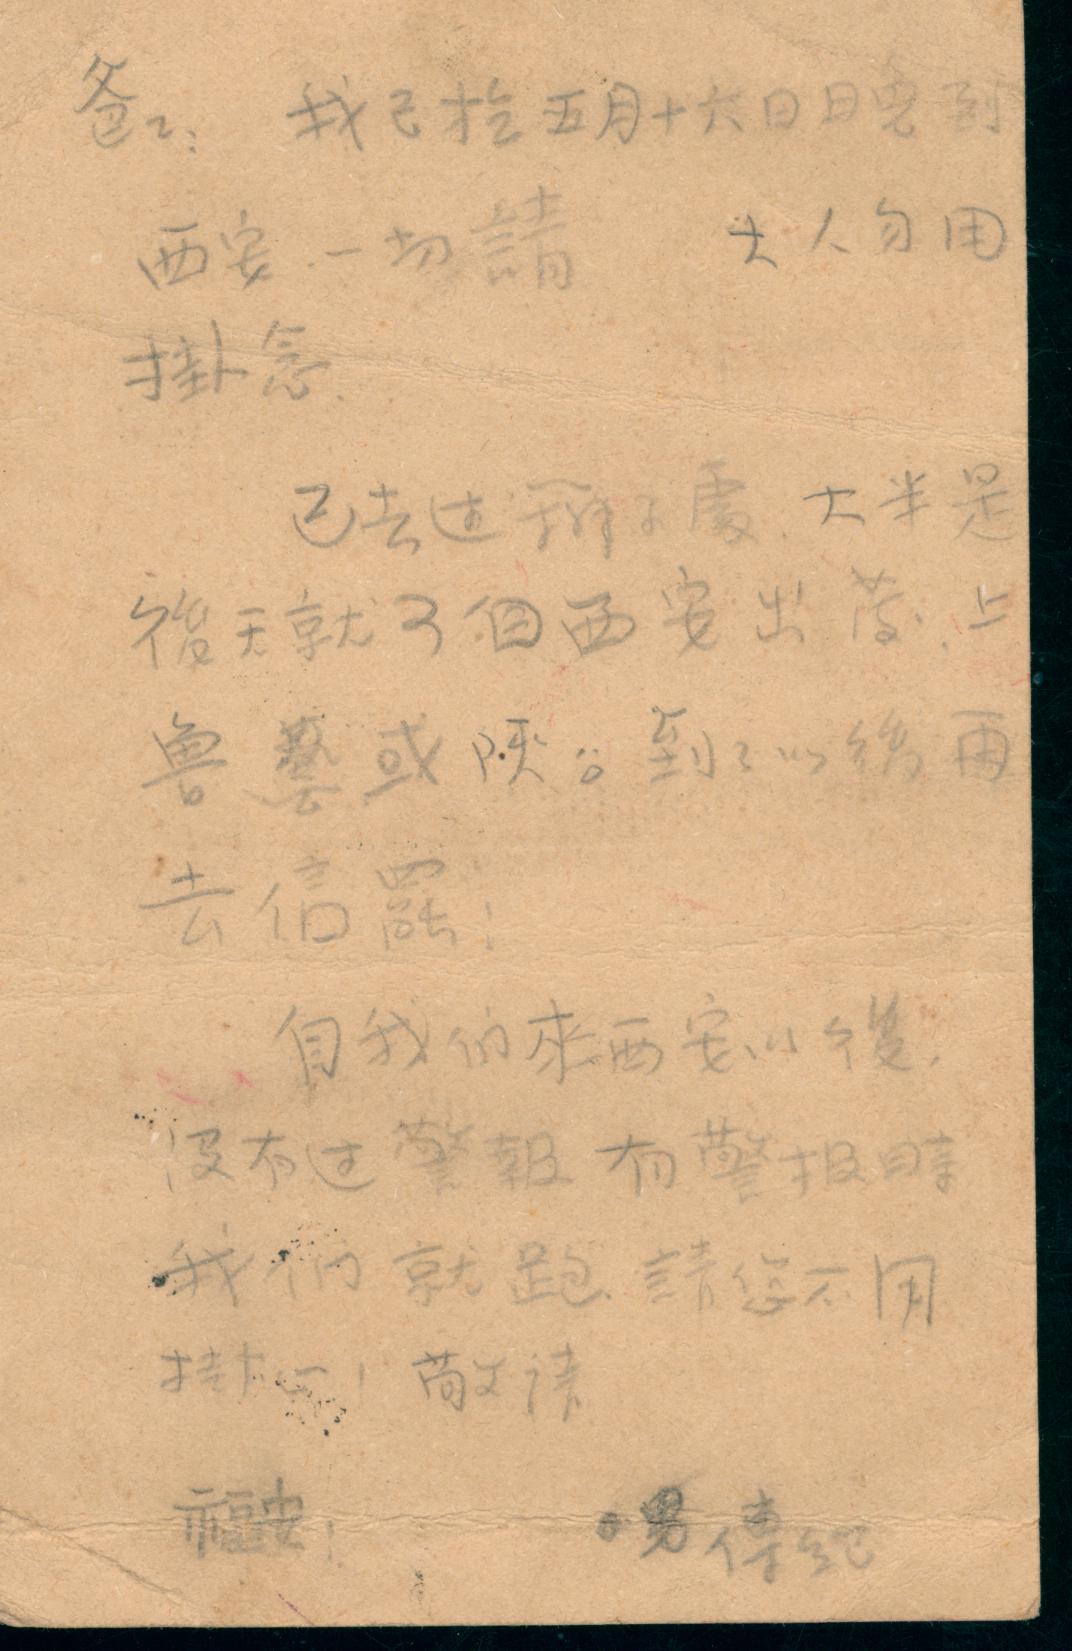 爸々：我已於五月十六日晚到
西安．一切請　　大人勿用
掛念．
已去过辦事處．大半是
後天就了個西安出發．上
魯藝或陝公．到了以後再
去信罷！
自我们來西安以後．
没有过警報 有警报時
我们就跑．請您不用
挂心！敬请
福安！　　男傳紀